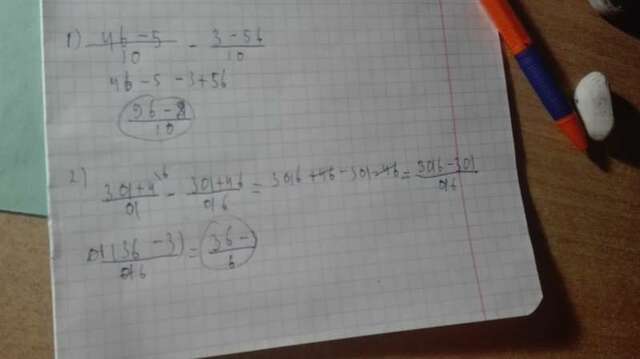 1) (4b-5)/10 - (3-5b)/10
4b-5-3+5b
(9b-8)/10
2) (3a+4^{\b})/a - (3a+4b)/(ab) = 3ab+4b-3a-4b = (3ab-3a)/(ab)
a(3b-3)/(ab) = (3b-3)/b